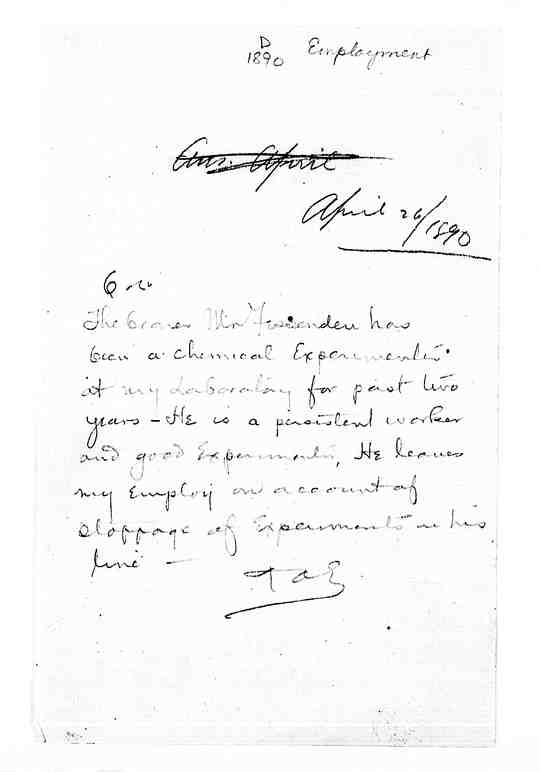 D
1890 Employment
Ans. April
April 26/1890
The bearer Mr Fessenden has
been a chemical Experimenter
at my Laboratory for past two
years - He is a persistent worker
and good Experimenter, He leaves
my Employ on account of
stoppage of Experiments in his
line —
TAE